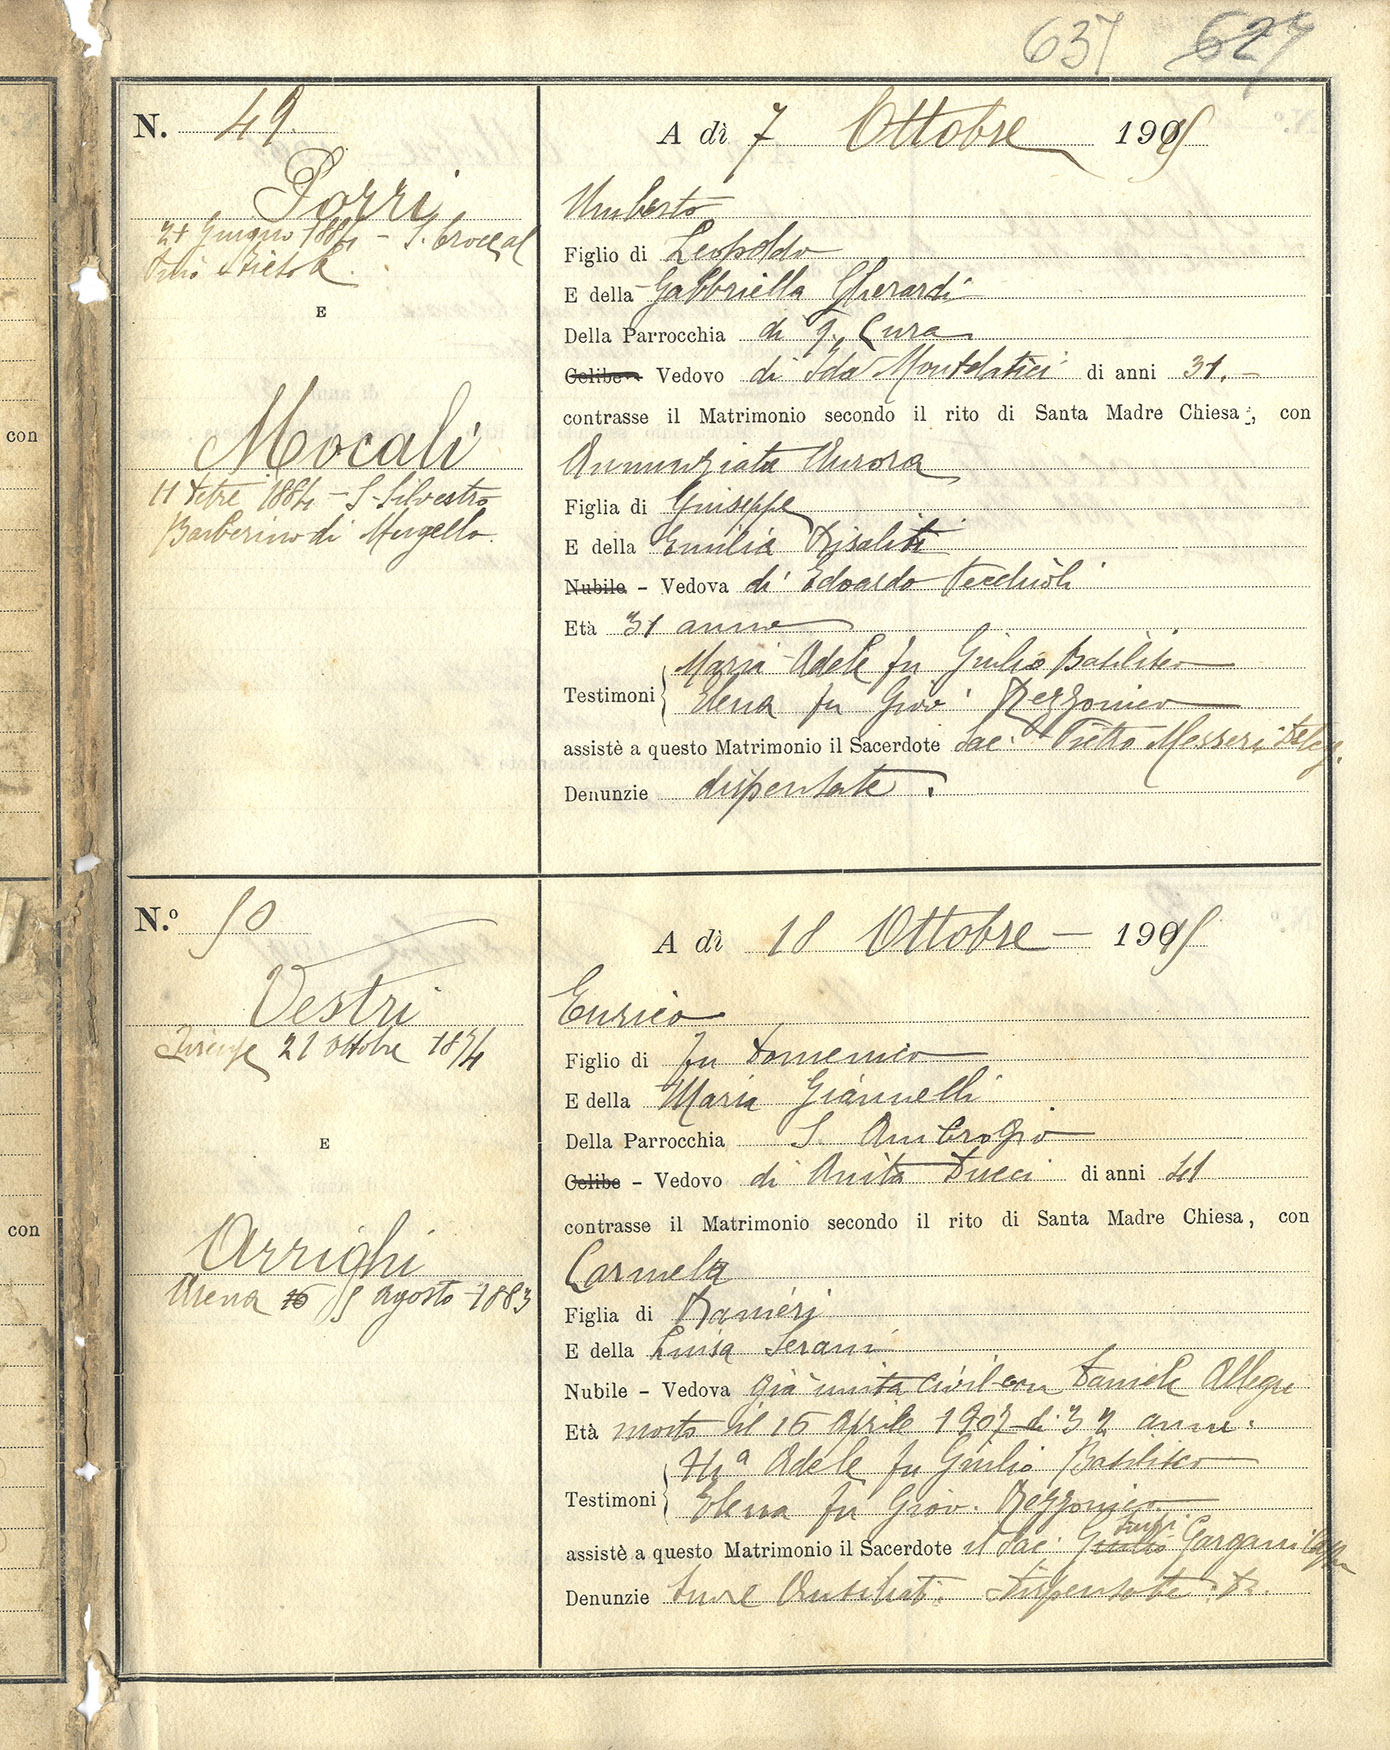 637 627
N. 49.
A dì 7 Ottobre 1905
Porri
21 Giugno 1884 - S. Croce al
Pino
E
Mocali
11 1884 - S. Silvestro
Barberino di Mugello.
Umberto
Figlio di Leopoldo
E della Gabbriella Gherardi
Della Parrocchia di q. Cura
Celibe Vedovo di Ida Montelatici di anni 31.-
contrasse il Matrimonio secondo il rito di Santa Madre Chiesa, con
Annunziata Aurora
Figlia di Giuseppe
E della Emilia Risaliti
Nubile - Vedova di Edoardo Vecchioli
Età 31 anno
Testimoni
Maria Adele fu Giulio Basilico
Elena fu Giov. Rezzonico
assistè a questo Matrimonio il Sacerdote Sac. Pietro Messeri Deleg.
Denunzie dispensate.
con
N.º 50
A dì 18 Ottobre - 1905
Vestri
Firenze 21 Ottobre 1874
E
Arrighi
16 15 Agosto 1883
Enrico
Figlio di fu Domenico
E della Maria Giannelli
Della Parrocchia S. Ambrogio
Celibe - Vedovo di Anita Ducci di anni 41
contrasse il Matrimonio secondo il rito di Santa Madre Chiesa, con
Carmela
Figlia di Ranieri
E della Luisa Serani
Nubile - Vedova già unita civil con Daniele Allegri
Età morto il 15 Aprile 1907 di 32 anni.
Testimoni
Mª Adele fu Giulio Basilico
Elena fu Giov. Rezzonico
assistè a questo Matrimonio il Sacerdote il Sac. Giulio Luigi Gargani Capp
Denunzie Dispensate
con